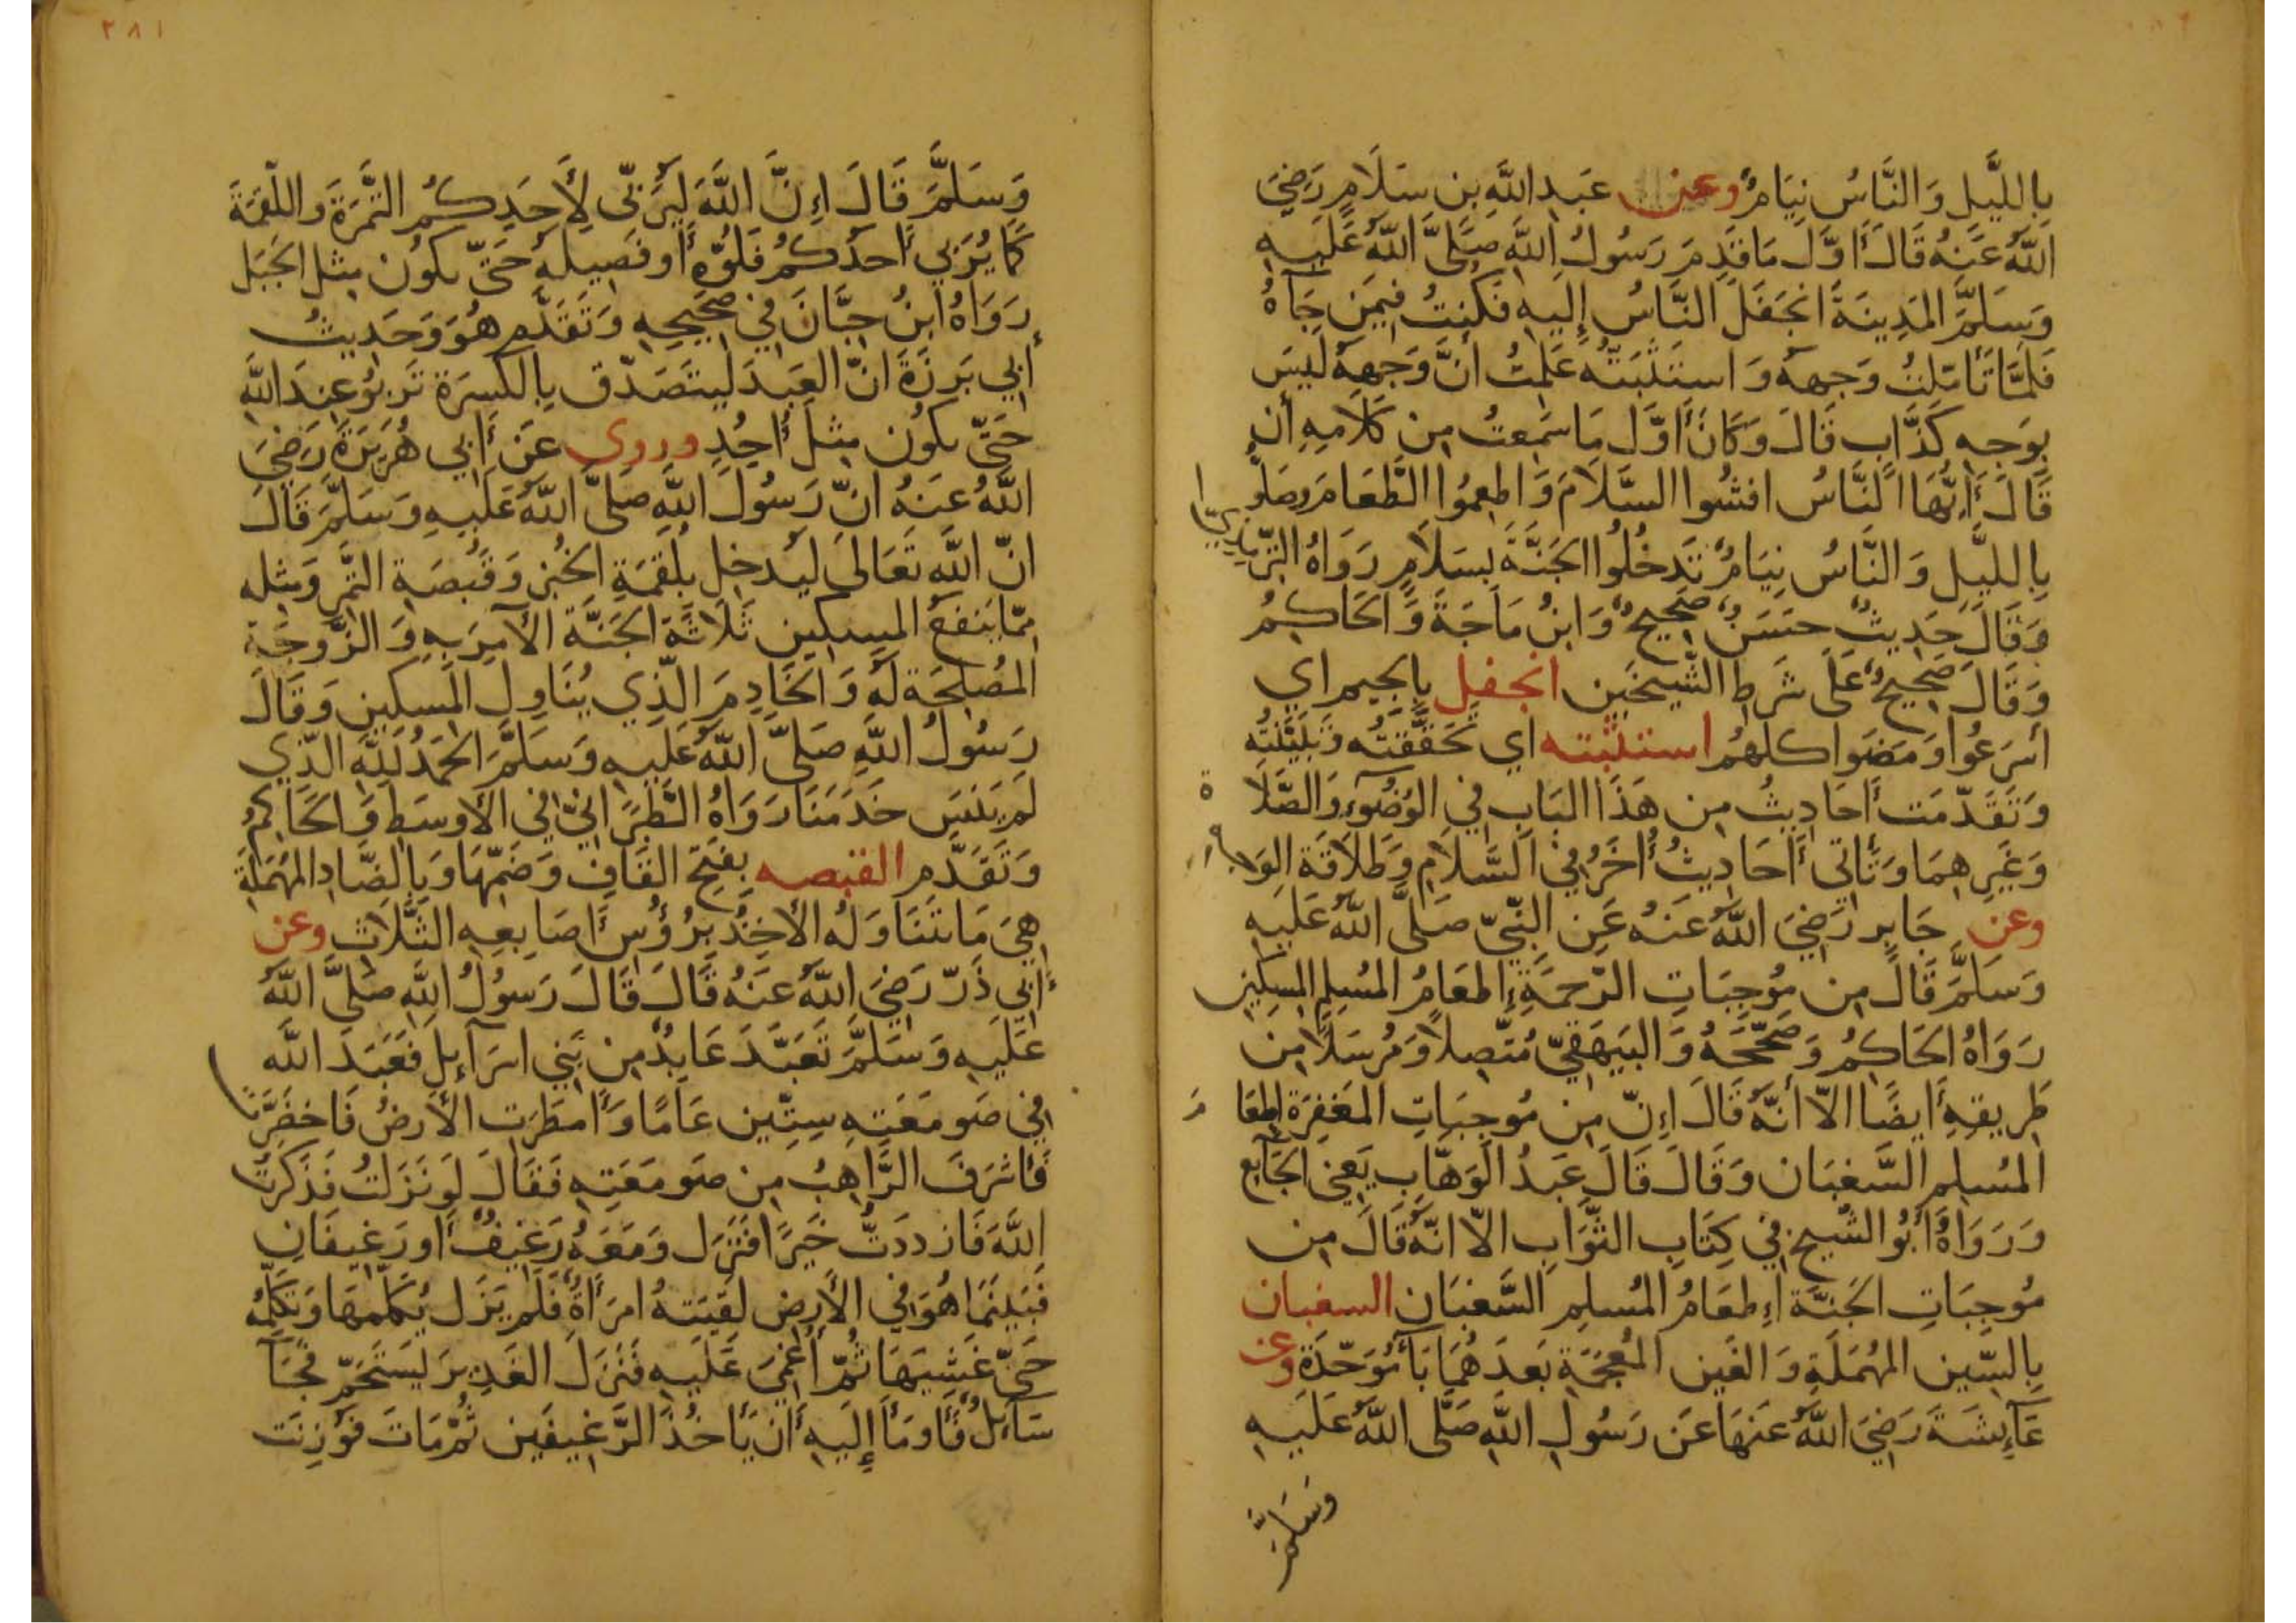 بِاللَّيلِ وَالنَّاسُ نِيَامٌ وعن عَبدِ اللَّهِ بن سَلَامٍ رَضِيَ
اللَّهُ عَنهُ قَالَ أَوَّلَ مَا قَدِمَ رَسُولُ اللَّهِ صَلَّى اللَّهُ عَلَيهِ
وَسَلَّمَ المَدِينَةَ انجَفَلَ النَّاسُ إِلَيهِ فَكُنتُ فِيمَن جَآءَهُ
فَلَمَّا تَأَمَّلتُ وَجهَهُ وَاستَثبَتُّهُ عَلِمتُ أَنَّ وَجهَهُ لَيسَ
بِوَجهِ كَذَّابٍ قَالَ وَكَانَ أَوَّل مَا سَمِعتُ مِن كَلَامِهِ أن
قَالَ أَيُّهَا النَّاسُ افشُوا السَّلَامَ وَاطعِمُوا الطَّعَامَ وصَلُّوا
بِاللَّيلِ وَالنَّاسُ نِيَامٌ تَدخُلُوا الجَنَّةَ بسَلَامٍ رَوَاهُ التِّرمذِيّ
وَقَالَ حَدِيثٌ حَسَنٌ صَحِيحٌ وَابنُ مَاجَةَ وَالحَاكِمُ
وَقَالَ صَحِيحٌ عَلَى شَرطِ الشَّيخَين انجفل بِالجيم اي
أسرَعُوا وَمَضَوا كلهُم استثبته اي تَحَقَّقتُه وَتَبَيَّنتُه
وَتَقَدَّمَت أَحَادِيثُ مِن هَذَا البَابِ فِي الوُضُوءِ وَالصَّلَاة
وَغَيرِهمَا وَتَأتي أَحَادِيثُ أُخَرُ فِي السَّلَامِ وَطَلَاقَةِ الوَجه
وعن جَابِر رَضِيَ اللَّهُ عَنهُ عَنِ النَّبِيّ صَلَّى اللَّهُ عَلَيهِ
وَسَلَّمَ قَالَ مِن مُوجِبَاتِ الرَّحمَةِ إِطعَامُ المُسلِمِ المِسكِين
رَوَاهُ الحَاكِمُ وَصَحَّحَهُ وَالبَيهَقِيّ مُتَّصِلاً وَمُرسَلاً مِن
طَرِيقِهِ أَيضًا الاّ أنَّهُ قَالَ إِنّ مِن مُوجِبَاتِ المَغفِرَة إِطعَامَ
المُسلِمِ السَّغبَان وَقَالَ قَالَ عَبدُ الوَهَّابِ يَعنِي الجَآيِع
وَرَوَاهُ أَبُو الشَّيخ فِي كِتَابِ الثَّوَابِ الاّ انّهُ قَالَ مِن
مُوجِبَاتِ الجَنَّةِ إِطعَامُ المُسلِمِ السَّغبَانِ السغبان
بِالسِّين المُهمَلَةِ وَالغَين المُعجَمَةِ بَعدَهُمَا بَآءٌ مُوَحَّدَةٌ وعن
عَآئِشَةَ رَضِيَ اللَّهُ عَنهَا عَن رَسُولِ اللَّهِ صَلَّى اللَّهُ عَلَيهِ
وَسَلَّمَ
٢٨١
وَسَلَّمَ قَالَ إِنَّ اللَّهَ لَيُرَبّي لِأَحَدِكُم التَّمرَةَ وَاللُّقمَةَ
كَمَا يُرَبِّي أَحدُكُم فَلُوَّهُ أَو فَصِيلهُ حَتّى يكُون مِثل الجَبَل
رَوَاهُ ابنُ حِبَّانَ فِي صَحِيحِهِ وَتَقَدَّم هُوَ وَحَدِيثُ
أَبِي بَرزَةَ انَّ العَبدَ لَيتَصَدّق بِالكِسرَة تَربُو عِندَ اللَّهِ
حَتّى يكُون مِثلَ أُحُدٍ وروى عَن أَبِي هُرَيرَةَ رَضِيَ
اللَّهُ عَنهُ انّ رَسُولَ اللَّهِ صَلَّى اللَّهُ عَلَيهِ وَسَلَّمَ قَالَ
انّ اللَّهَ تَعَالَى لَيُدخِل بلُقمَةِ الخُبزِ وَقَبصَةِ التَّمرِ وَمِثله
مِمّا يَنفَعُ المِسكِين ثَلَاثَةً الجَنَّةَ الآمِرَ بِهِ وَالزَّوجَة
المُصلِحَةَ لَهُ وَالخَادِمَ الَّذِي يُنَاوِلُ المِسكِينِ وَقَالَ
رَسُولُ اللَّهِ صَلَّى اللَّهُ عَلَيهِ وَسَلَّمَ الحَمدُ للَّهِ الَّذِي
لَم يَنسَ خَدَمَنَا رَوَاهُ الطَّبَرَانِيّ فِي الأَوسَطِ وَالحَاكِمُ
وَتَقَدَّم القبصه بِفَتحِ القَافِ وَضَمّهَا وَبِالصَّادِ المُهمَلَةِ
هِيَ مَا تَنَاوَلهُ الأَخِذُ بِرُؤُسِ أَصَابِعِهِ الثَّلَاثِ وعن
أَبِي ذَرّ رَضِيَ اللَّهُ عَنهُ قَالَ قَالَ رَسُولُ اللَّهِ صَلَّى اللَّهُ
عَلَيهِ وَسَلَّمَ تَعَبَّدَ عَابِدٌ مِن بَنِي اسرَآءِيلَ فَعَبَدَ اللَّه
فِي صَومَعَتِهِ سِتِّين عَامًا وَأَمطَرَت الأَرضُ فَاخضَرَّت
فَأَشرَفَ الرَّاهِبُ مِن صَومَعَتِهِ فَقَالَ لَو نَزَلتُ فَذَكَرتُ
اللَّهَ فَازدَدتُ خَيرًا فَنَزَل وَمَعَهُ رَغِيفٌ أَو رَغِيفَانِ
فَبَينَمَا هُوَ فِي الأَرضِ لَقِيَتهُ امرَأَةٌ فَلَم يَزَل يُكَلّمهَا وَتُكَلّمُهُ
حَتّى غَشِيَهَا ثُمّ أُغمِيَ عَلَيهِ فَنَزَلَ الغَدِيرَ ليَستَحِمّ فَجَآءَ
سَآئِلٌ فَأَومَأَ إِلَيهِ أَن يَأخُذَ الرَّغِيفَين ثُمّ مَاتَ فَوُزِنَت